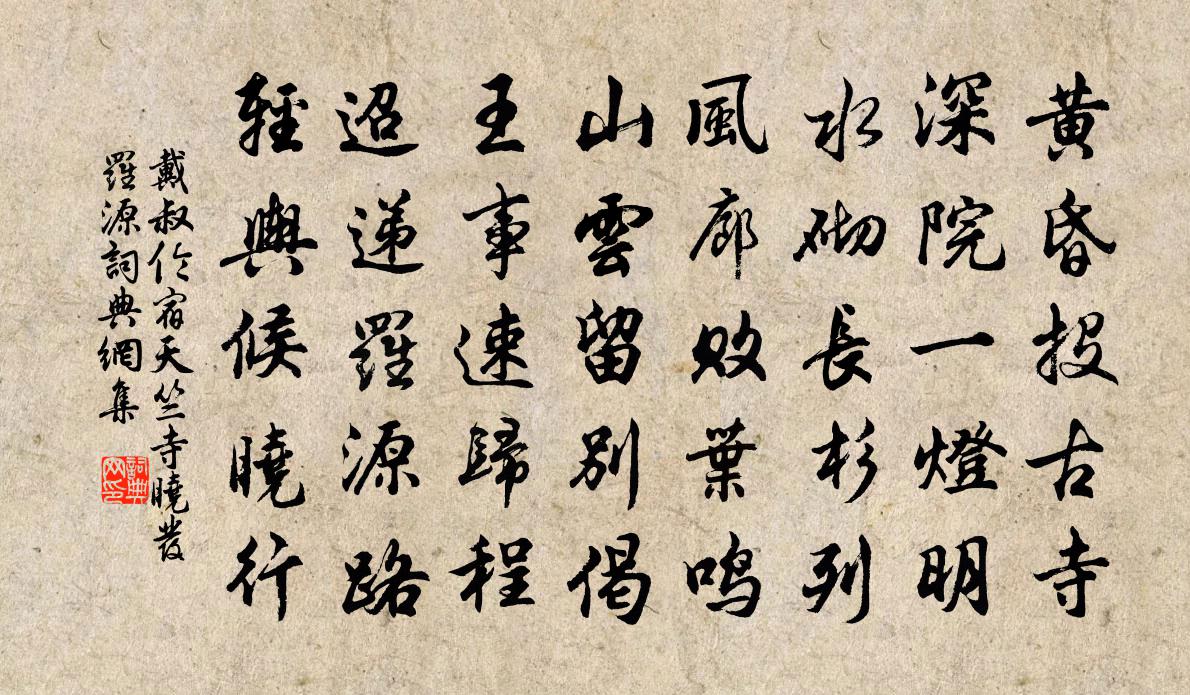 黄昏投古寺
深院一燈明
水砌長杉列
風廊敗葉鳴
山雲留別偈
王事速歸程
迢递羅源路
輕輿候曉行
戴叔伦宿天竺寺曉發
羅源詞典網集
詞典网印